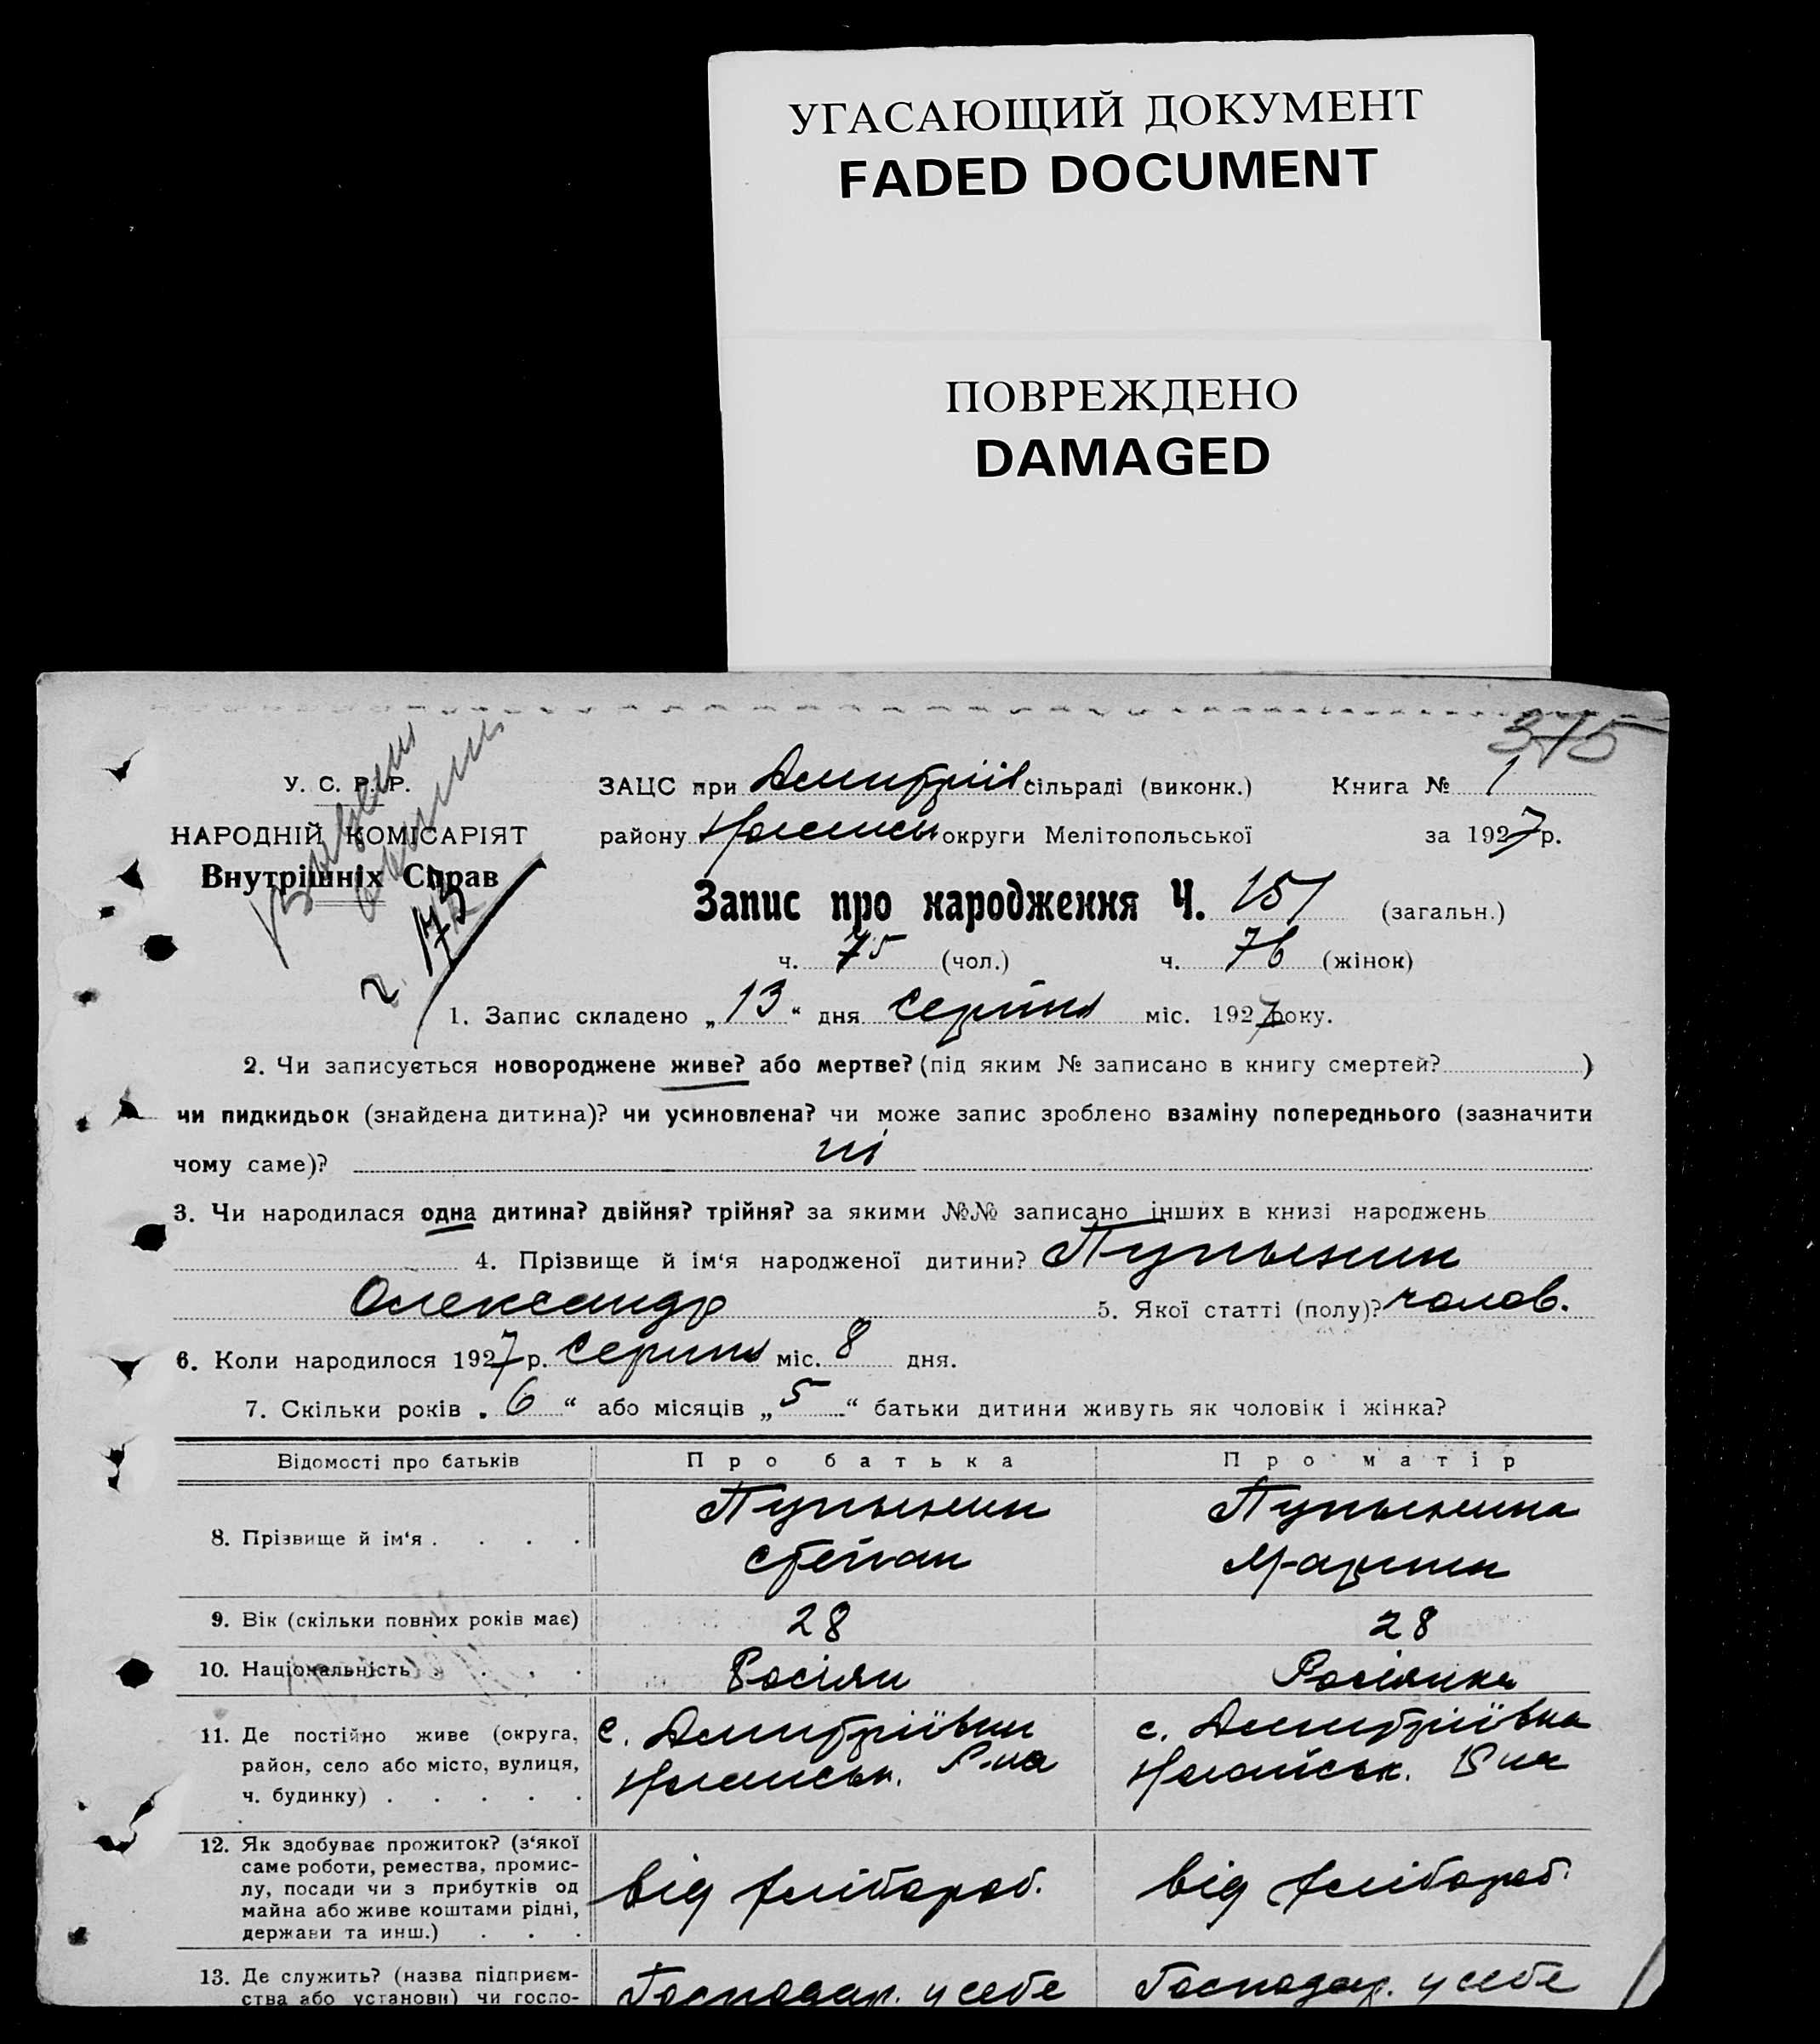 УГАСАЮЩИЙ ДОКУМЕНТ
FADED DOCUMENT
ПОВРЕЖДЕНО
DAMAGED
375
У. С. Р. Р.
НАРОДНІЙ КОМІСАРІЯТ
Внутрішніх Справ
ч. 173
ЗАЦС при Дмитріїв сільраді (виконк.) Книга № 1
району Ногайськ округи Мелітопольської за 1927 р.
Запис про народження Ч. 151 (загальн.)
ч. 75 (чол.) ч. 76 (жінок)
1. Запис складено „13“ дня серпня міс. 1927 року.
2. Чи записується новороджене живе? або мертве? (під яким № записано в книгу смертей? )
чи пидкидьок (знайдена дитина)? чи усиновлена? чи може запис зроблено взаміну попереднього (зазначити
чому саме)? ні
3. Чи народилася одна дитина? двійня? трійня? за якими №№ записано інших в книзі народжень
4. Прізвище й ім‘я народженої дитини? Пупынин
Олександр 5. Якої статті (полу)? чолов.
6. Коли народилося 1927 р. серпня міс. 8 дня.
7. Скільки років „6“ або місяців „5“ батьки дитини живуть як чоловік і жінка?
Відомості про батьків Про батька Про матір
8. Прізвище й ім‘я . . . . Пупынин Пупынина
Степан Марина
9. Вік (скільки повних років має) 28 28
10. Національність . . . . Росіян Росіянка
11. Де постійно живе (округа, с. Дмитріївки с. Дмитріївка
район, село або місто, вулиця, Ногайськ. Р-на Ногайськ. Р-на
ч. будинку) . . . . .
12. Як здобуває прожиток? (з‘якої
саме роботи, ремества, промис-
лу, посади чи з прибутків од від хлібороб. від хлібороб.
майна або живе коштами рідні,
держави та инш.) . . .
13. Де служить? (назва підприєм- Господар. у себе Господар. у себе
ства або установи) чи госпо-